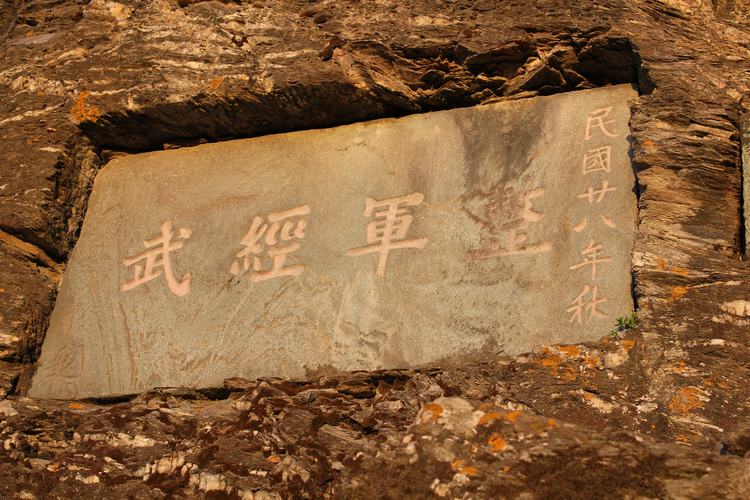 民國廿八年秋
整軍經武